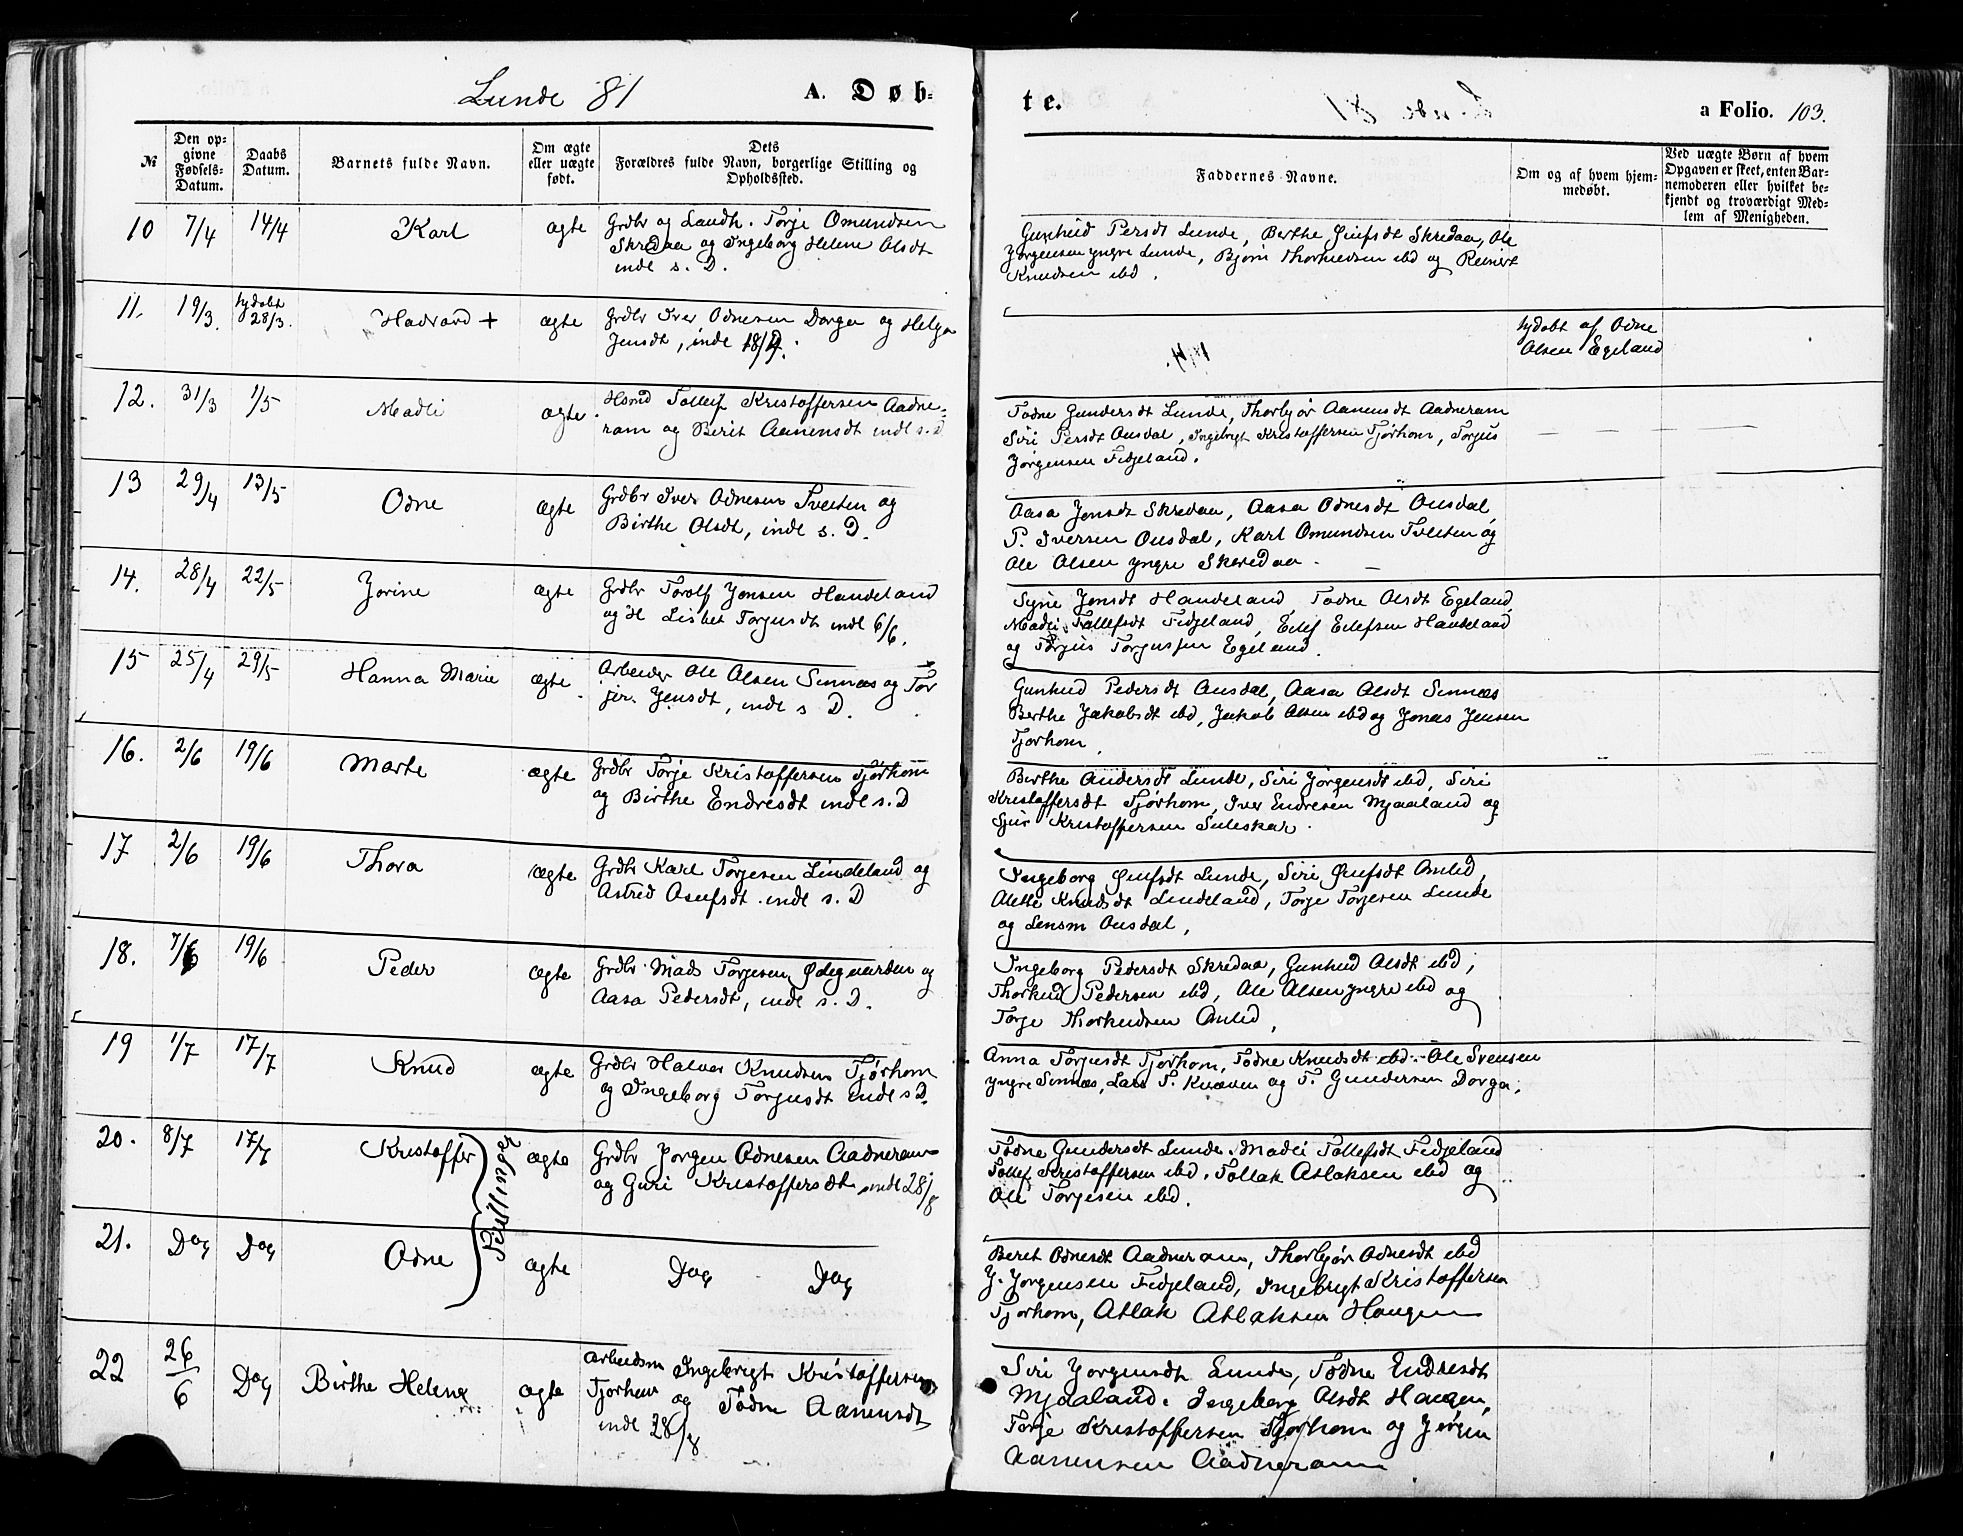 Lunde 81 A. Døb-
te. a Folio. 103.
№
Den op-
givne
Fødsels-
Datum.
Daabs
Datum.
Barnets fulde Navn.
Om ægte
eller uægte
født.
Dets
Forældres fulde Navn, borgerlige Stilling og
Opholdssted.
Faddernes Navne.
Om og af hvem hjem-
medøbt.
Ved uægte Børn af hvem
Opgaven er skeet, enten Bar-
nemoderen eller hvilket be-
kjendt og troværdigt Med-
lem af Menigheden.
10 7/4 14/4 Karl ægte
Grdbr og Landh. Torje Omundsen
Skredaa og Ingeborg Helene Olsdt
indl s. D.
Gunhild Persdt Lunde, Berthe Skredaa, Ole
Jørgensen yngre Lunde, Bjørn ibd og Reinert
Knudsen ibd.
11. 19/3. hjdøbt
28/3. Hadvard + ægte
Grdbr Iver Odnesen Dorga og Helga
Jensdt, indl 18/4.
hjdøbt af Odne
Olsen Egeland
12. 31/3 1/5 Madli ægte.
Hsmd Tollef Kristoffersen Aadne-
ram og Berit Aanensdt indl s. D
Todne Gundersdt Lunde, Thorbjør Aanensdt Aadneram
Siri Persdt Ousdal, Ingebrigt Kristoffersen Tjørhom, Torjus
Jørgensen Fidjeland.
13 29/4 13/5 Odne ægte
Grdbr Iver Odnesen Tveiten og
Birthe Olsdt, indl s. D.
Aasa Jonsdt Skredaa, Aasa Odnesdt Ousdal,
P. Iversen Ousdal, Karl Omundsen Tveiten og
Ole Olsen yngre Skeredaa.
14. 28/4 22/5 Jorine ægte
Grdbr Torolf Jonsen Handeland
og H Lisbet Torjusdt indl 6/6.
Signe Jonsdt Handeland, Todne Olsdt Egeland,
Madli Tollefsdt Fidjeland, Eilef Eilefsen Handeland
og Torjus Torjussen Egeland.
15 25/4 29/5 Hanna Marie ægte.
Arbeider Ole Olsen Sinnæs og Tor
jir. Jensdt, indl s D.
Gunhild Pedersdt Ousdal, Aasa Olsdt Sinnæs
Berthe Jakobsdt ibd, Jakob Olsen ibd og Jonas Jensen
Tjørhom.
16. 2/6 19/6 Marte ægte
Grdbr Torje Kristoffersen Tjørhom
og Birthe Endresdt indl s. D
Birthe Andersdt Lunde, Siri Jørgensdt ibd, Siri
Kristoffersdt Tjørhom, Iver Endresen Mjaaland og
Sjur Kristoffersen Suleskar.
17 2/6 19/6 Thora ægte
Grdbr Karl Torjesen Lindeland og
Astrid Asulfsdt. indl s. D
Ingeborg Lunde, Siri Omlid,
Alette Knudsdt Lindeland, Torje Torjesen Lunde
og Lensm Ousdal,
18. 7/6 19/6 Peder ægte
Grdbr Mads Torjesen Ødegaarden og
Aasa Pedersdt, indl s. D.
Ingeborg Pedersdt Skredaa, Gunhild Olsdt ibd,
Thorkild Pedersen ibd, Ole Olsen yngre ibd og
Torje Thorkildsen Omlid,
19 1/7 17/7 Knud ægte
Grdbr Halvor Knudsen Tjørhom
og Ingeborg Torjusdt indl s D.
Anna Torjusdt Tjørhom, Todne Knudsdt ibd. Ole Svensen
yngre Sinnæs, Lars T. Kvæven og T. Gundersen Dorga.
20. 8/7 17/7 Kristoffer ægte
Grdbr Jørgen Odnesen Aadneram
og Guri Kristoffersdt indl 28/8
Todne Gundersdt Lunde. Madli Tollefsdt Fidjeland
Tollef Kristoffersen ibd. Tollak Atlaksen ibd og
Ole Torjesen ibd.
Tvillinger
21. Do Do Odne ægte Do Do
Berit Odnesdt Aadneram, Thorbjør Odnesdt ibd
J. Jørgensen Fidjeland, Ingebrigt Kristoffersen
Tjørhom, Atlak Atlaksen Haugen
22 26/6 Do Birthe Helene ægte
Arbeidsm Ingebrigt Kristoffersen
Tjørhom og Todne Aanensdt
indl 28/8
Siri Jørgensdt Lunde, Todne Endresdt
Mjaaland. Ingeborg Olsdt Haugen,
Torje Kristoffersen Tjørhom og Jørgen
Aanensen Aadneram